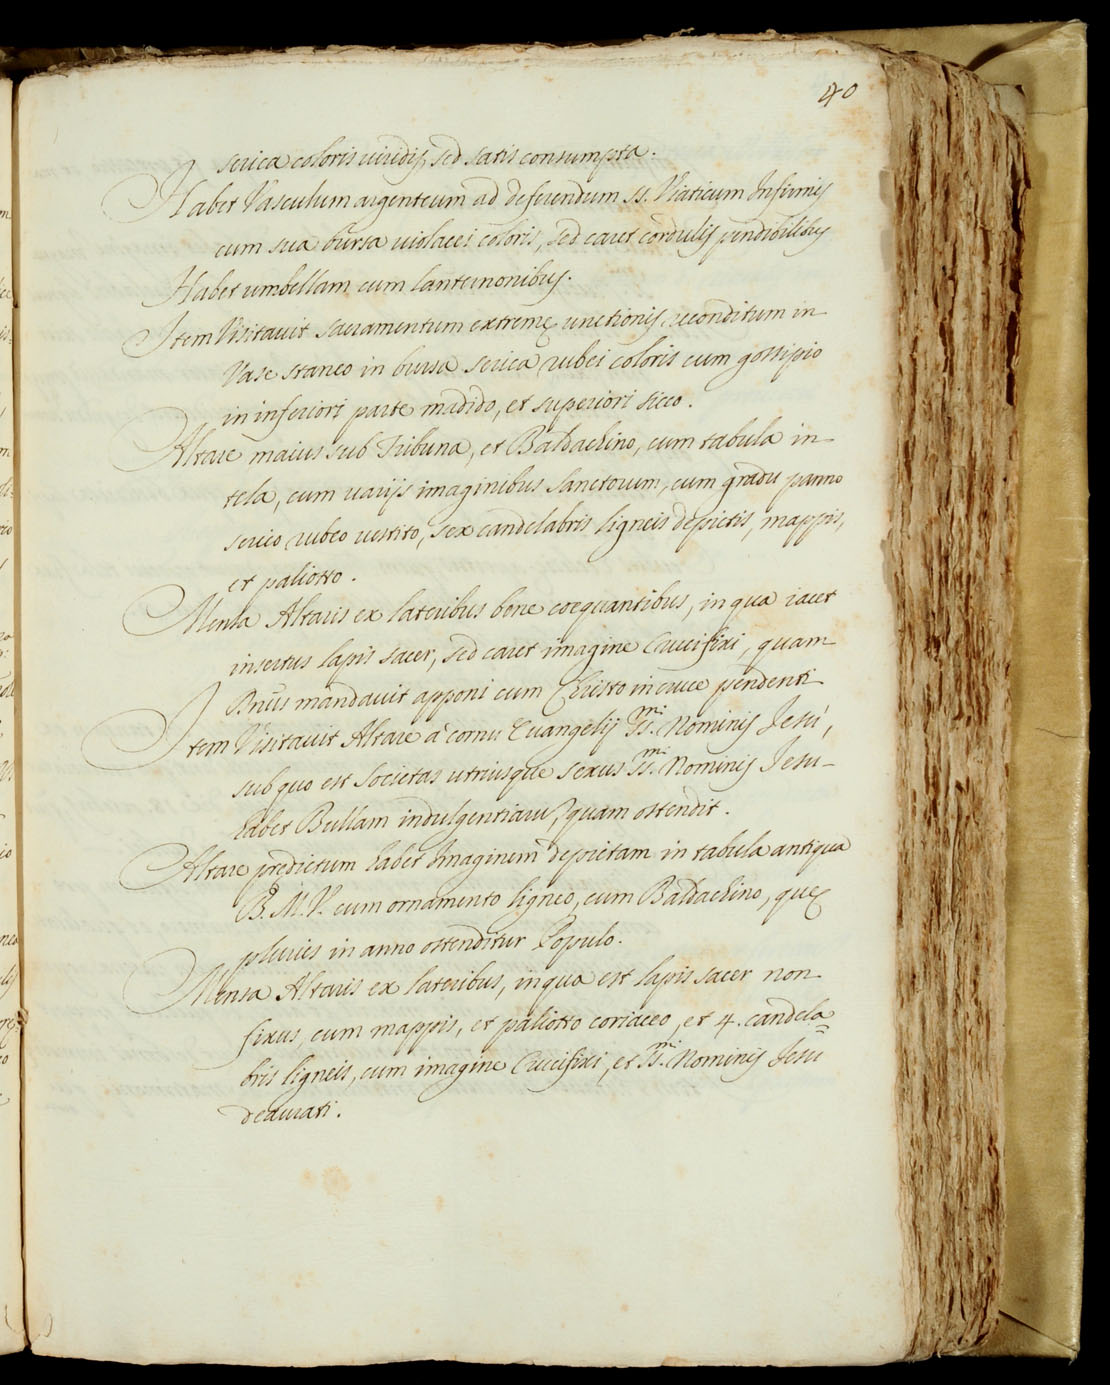 40
serica coloris viridis, sed satis consumpta.
Habet Vasculum argenteum ad deferendum ss. Viaticum Infirmis
cum sua bursa violacei coloris, sed caret cordulis pendibilibus
Habet umbellam cum lanternonibus.
Item Visitavit sacramentum extremę unctionis, reconditum in
Vase staneo in bursa serica rubei coloris cum gossipio
in inferiori parte madido, et superiori sicco.
Altare maius sub Tribuna, et Baldachino, cum tabula in
tela, cum varijs imaginibus Sanctorum, cum gradu panno
serico rubeo vestito, sex candelabris ligneis depictis, mappis,
et paliotto.
Mensa Altaris ex lateribus bene coequantibus, in qua iacet
insertus lapis sacer, sed caret imagine Crucifixi, quam
Bnus mandavit apponi cum Christo in cruce pendenti
Item Visitavit Altare à cornu Evangelij Ss.mi Nominis Jesù,
sub quo est Societas utriusque sexus Ss.mi Nominis Jesu
habet Bullam indulgentiaru, quam ostendit.
Altare prędictum habet Imaginem depictam in tabula antiqua
B. M. V. cum ornamento ligneo, cum Baldachino, quę
pluries in anno ostenditur Populo.
Mensa Altaris ex lateribus, in qua est lapis sacer non
fixus, cum mappis, et paliotto coriaceo, et 4. candela=
bris ligneis, cum imagine Crucifixi, et Ss.mi Nominis Jesu
deaurati.